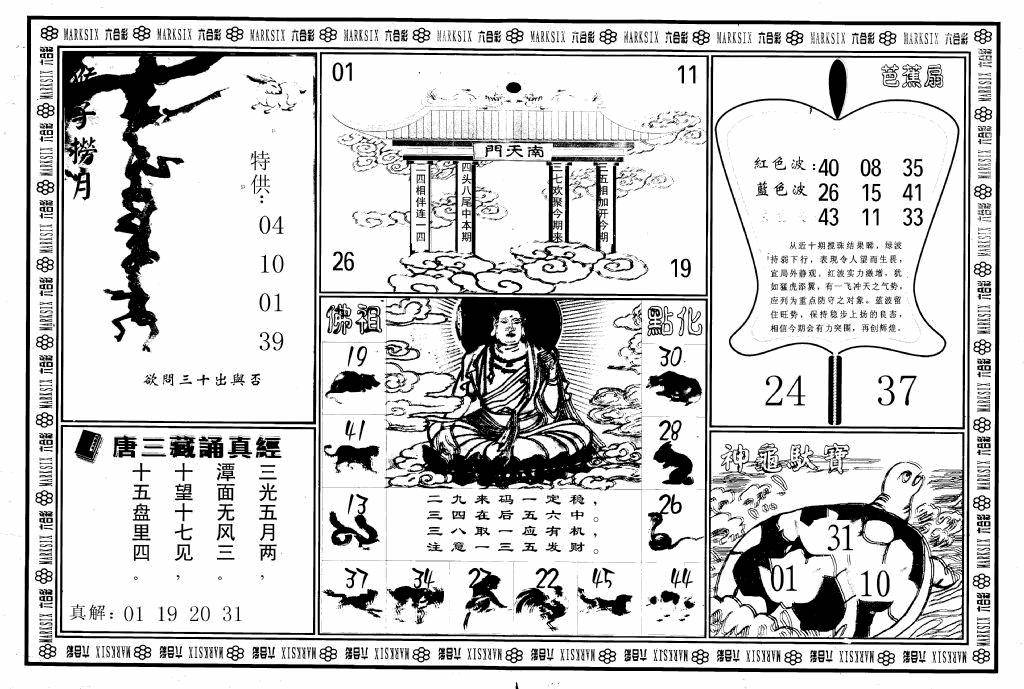 MARKSIX 六合彩 MARKSIX 六合彩 MARKSIX 六合彩 MARKSIX 六合彩 MARKSIX 六合彩 MARKSIX 六合彩 MARKSIX 六合彩 MARKSIX 六合彩 MARKSIX 六合彩 MARKSIX 六合彩
猴子撈月
特供：
04
10
01
39
欲問三十出與否
01
11
南天門
二四相伴连一四
四头八尾中本期
三七欢聚今期来
二五相加开今期
26
19
芭蕉扇
紅色波：40 08 35
藍色波 26 15 41
43 11 33
从近十期搅珠结果睇，绿波
持弱下行，表现令人望而生畏，
宜局外静观。红波实力激增，犹
如猛虎添翼，有一飞冲天之气势，
应列为重点防守之对象。蓝波留
住旺势，保持稳步上扬的良态，
相信今期会有力突围，再创辉煌。
24
37
佛祖
點化
19
30
41
28
13
26
二九来码一定稳，
三四在后五六中。
三八取一应有机，
注意一三五发财。
37
34
22
45
44
唐三藏誦真經
三光五月两，
潭面无风三。
十望十七见，
十五盘里四。
真解：01 19 20 31
神龜馱寶
31
01
10